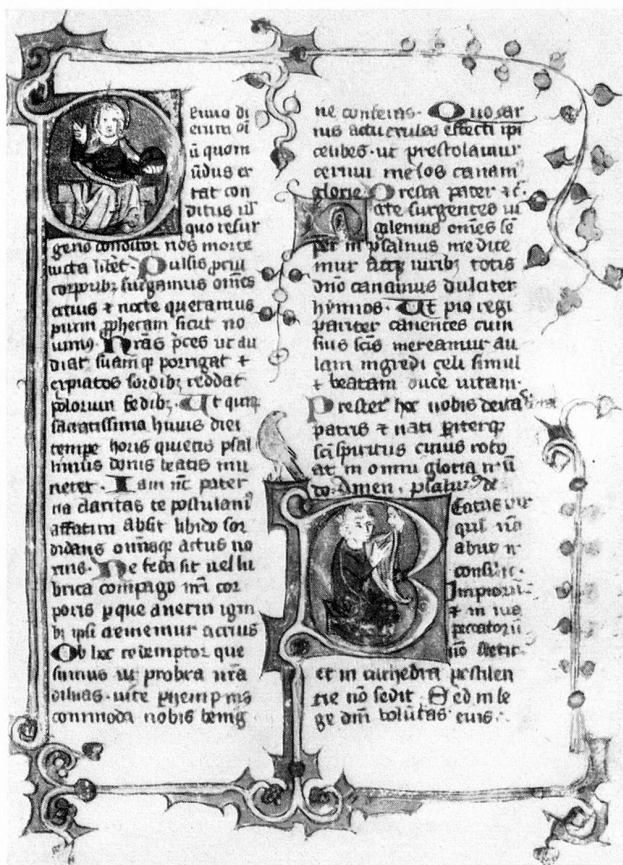 rimo di
erum oī
ū quom
ūdus ex
tat con
ditus ul̄
quo resur
gens conditor nos morte
uicta libēt. Pulsis pcul
torporibꝫ surgamus om̄es
ocius ⁊ nocte queramus
pium ꝓphetam sicut no
uimꝰ. Nr̄as p̄ces ut au
diat suamqꝫ porrigat ⁊
expiatos sordibꝫ reddat
polorum sedibꝫ. Ut quiqꝫ
sacratissima huius diei
tempe horis quietis psal
limus donis beatis mu
neret. Iam nc̄ pater
na claritas te postulamꝰ
affatim absit libido sor
didans omīsqꝫ actus no
xius. Ne feda sit uel lu
brica compago nr̄i cor
poris ꝑ que auerni igni
bꝫ ipsi crememur acrius
Ob hoc redemptor que
sumus ut probra nr̄a
diluas. uite ꝑhempnis
commoda nobis benig
ne conferas. Quo car
nis actu exules effecti ipi
celibes. ut prestolamur
cernui melos canamꝰ
glorie. Presta pater ⁊c̄.
Nocte surgentes ui
gilemus om̄es sē
per in psalmis medite
mur atqꝫ uiribꝫ totis
dn̄o canamus dulciter
hymnos. Ut pio regi
pariter canentes cum
suis sc̄is mereamur au
lam ingredi celi simul
⁊ beatam duce uitam.
Prestet hoc nobis deitas
patris ⁊ nati ꝑiterqꝫ
sc̄i spiritus cuius rebo
at in omni gloria mū
do. Amen. psalmꝰ dd
Beatus uir
qui nō
abiit ī
consilio
Impiorū
⁊ in uia
peccatorū
nō stetit
et in cathedra pestilen
tie nō sedit. Sed in le
ge dn̄i uolūtas eius.